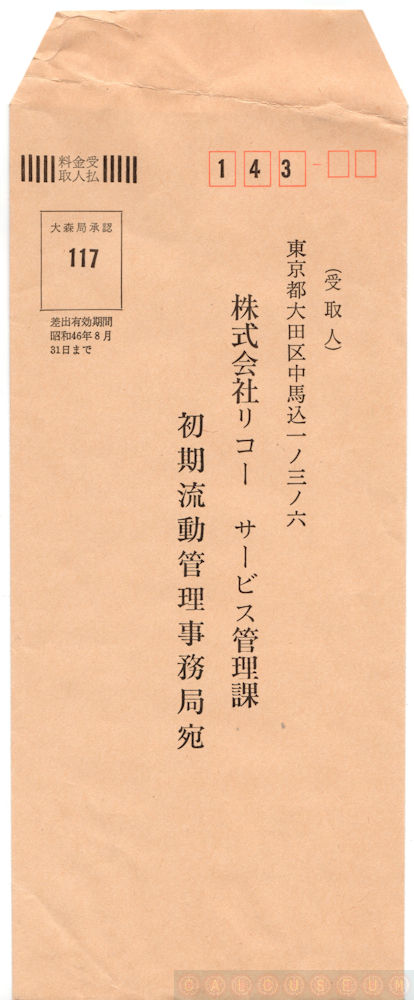 料金受
取人払
143-
大森局承認
117
差出有効期間
昭和46年8月
31日まで
(受取人)
東京都大田区中馬込一ノ三ノ六
株式会社リコー サービス管理課
初期流動管理事務局宛
CALCUSEUM